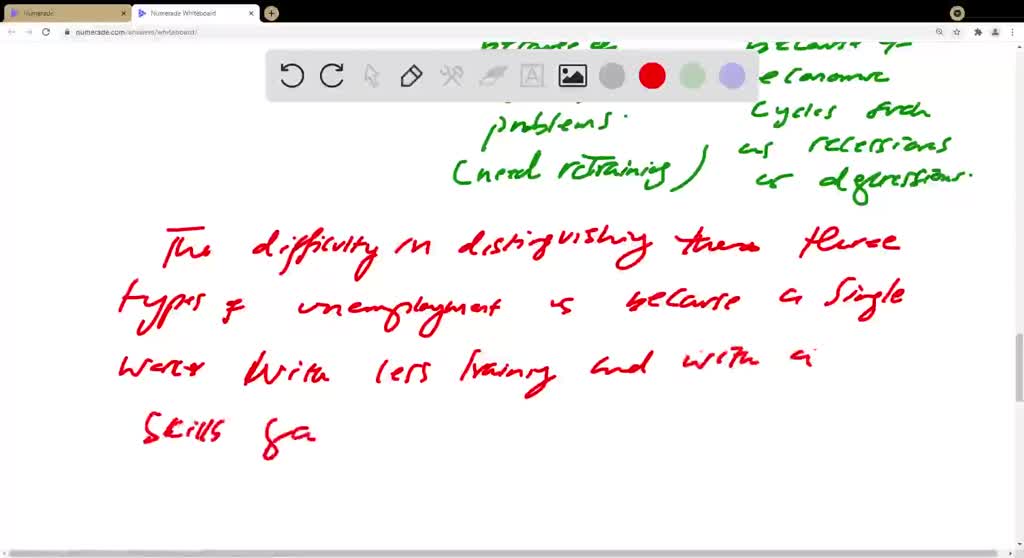 Numerade
Numerade Whiteboard
numerade.com/answers/whiteboard/
A
because
economic
problems.
cycles such
(need retraining)
as recessions
or depressions.
The difficulty in distinguishing these three
types of unemployment is because a single
worker with less training and with a
skills ga